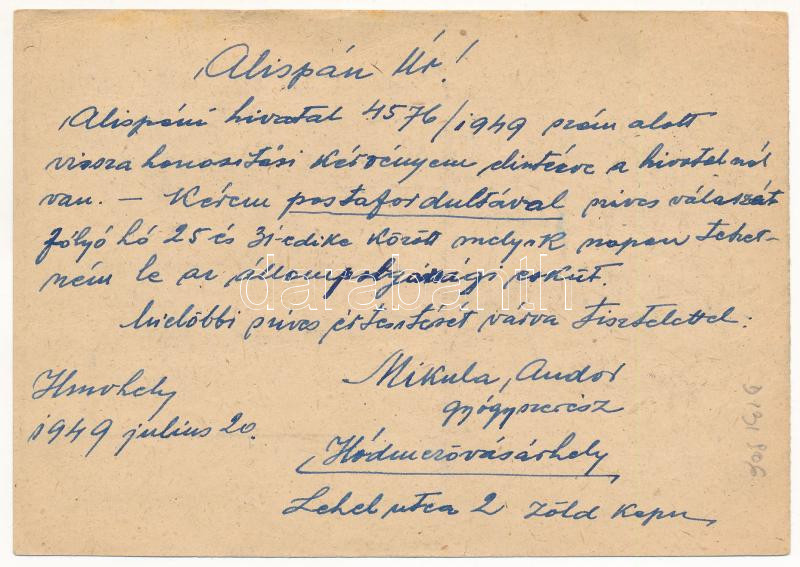 Alispán Úr!
Alispáni hivatal 4576/1949 szám alatt
vissza honosítási kérvényem elintézve a hivatalnál
van. — Kérem postafordultával szives válaszát
folyó hó 25 és 31-edike között melyik napon tehet-
ném le az állampolgársági esküt.
Mielőbbi szives értesítését várva tisztelettel:
Mikula, Andor
gyógyszerész
Hmvhely
1949 julius 20.
Hódmezővásárhely
Lehel utca 2 Zöld Kapu
darabanth